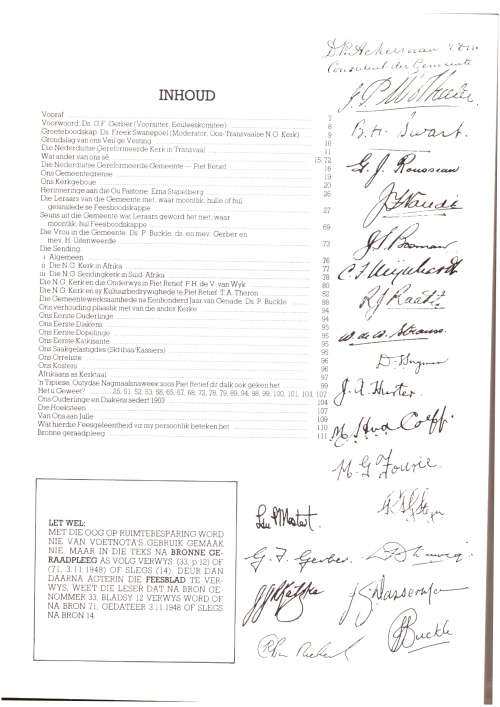 INHOUD
Vooraf 7
Voorwoord: Ds. G.F. Gerber (Voorsitter, Eeufeeskomitee) 8
Groeteboodskap: Ds. Freek Swanepoel (Moderator, Oos-Transvaalse N.G. Kerk) 9
Grondslag van ons Veilige Vesting 10
Die Nederduitse Gereformeerde Kerk in Transvaal 11
Wat ander van ons sê 15, 72
Die Nederduitse Gereformeerde Gemeente — Piet Retief 16
Ons Gemeentegrense 19
Ons Kerkgeboue 20
Herinneringe aan die Ou Pastorie: Erna Stapelberg 26
Die Leraars van die Gemeente met, waar moontlik, hulle of hul
geslinskede se Feesboodskappe 27
Seuns uit die Gemeente wat Leraars geword het met, waar
moontlik, hul Feesboodskappe 69
Die Vrou in die Gemeente: Ds. P. Buckle, ds. en mev. Gerber en
mev. H. Liebenweerde 73
Die Sending:
i Algemeen 76
ii Die N.G. Kerk in Afrika 77
iii Die N.G. Sendingkerk in Suid-Afrika 78
Die N.G. Kerk en die Onderwys in Piet Retief: F.H. de V. van Wyk 80
Die N.G. Kerk en sy Kultuurbedrywighede te Piet Retief: T.A. Theron 82
Die Gemeentewerksaamhede na Eenhonderd Jaar van Genade: Ds. P. Buckle 88
Ons verhouding plaaslik met van die ander Kerke 94
Ons Eerste Ouderlinge 94
Ons Eerste Diakens 95
Ons Eerste Dopelinge 95
Ons Eerste Katkisante 95
Ons Saakgelastigdes (Skribas/Kassiers) 95
Ons Orreliste 96
Ons Kosters 96
Afrikaans as Kerktaal 97
'n Tipiese, Outydse Nagmaalsnaweek soos Piet Retief dit dalk ook geken het 99
Het u Geweet? 25, 51, 52, 53, 58, 65, 67, 68, 73, 78, 79, 89, 94, 98, 99, 100, 101, 103, 107
Ons Ouderlinge en Diakens sedert 1903 104
Die Hoeksteen 107
Van Ons aan Julle 109
Wat hierdie Feesgeleentheid vir my persoonlik beteken het 110
Bronne geraadpleeg 111
LET WEL:
MET DIE OOG OP RUIMTEBESPARING WORD
NIE VAN VOETNOTA'S GEBRUIK GEMAAK
NIE, MAAR IN DIE TEKS NA BRONNE GE-
RAADPLEEG AS VOLG VERWYS: (33, p.12) OF
(71, 3.11.1948) OF SLEGS (14). DEUR DAN
DAARNA AGTERIN DIE FEESBLAD TE VER-
WYS, WEET DIE LESER DAT NA BRON GE-
NOMMER 33, BLADSY 12 VERWYS WORD OF
NA BRON 71, GEDATEER 3.11.1948 OF SLEGS
NA BRON 14.
D.P. Ackerman
Consulent der Gemeente
B.H. Swart.
G. J. Rousseau
J. S. Bosman
R J Raath
W. de W. Strauss.
J. A. Hurter
M. G. Fourie.
G. F. Gerber.
P Buckle